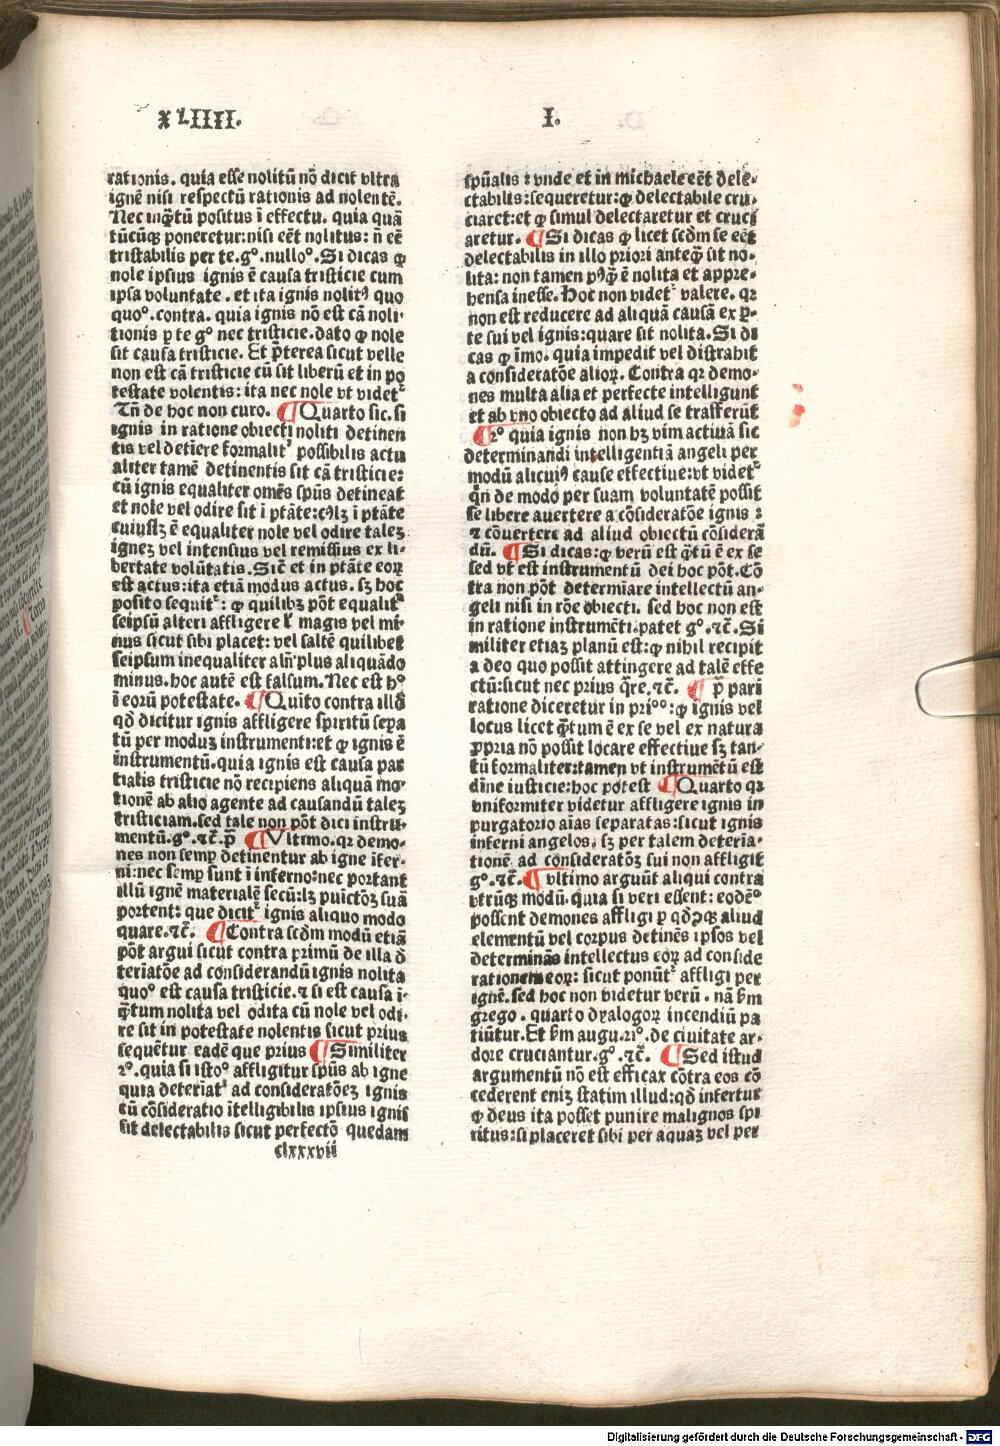 XLIIII.
I.
rationis. quia esse nolitū nō dicit vltra
ignē nisi respectū rationis ad nolentē.
Nec inq̄tū positus ī effectu. quia quā
tūcūqꝫ poneretur: nisi eēt nolitus: n̄ eē
tristabilis per te. gº. nulloº. Si dicas ꝙ
nole ipsius ignis ē causa tristicie cum
ipsa voluntate. et ita ignis nolitꝰ quo
quoº. contra. quia ignis nō est cā noli-
tionis p te gº nec tristicie. dato ꝙ nole
sit causa tristicie. Et p̄terea sicut velle
non est cā tristicie cū sit liberū et in po
testate volentis: ita nec nole vt videt᷑
Tn̄ de hoc non curo. ¶ Quarto sic. si
ignis in ratione obiecti noliti detinen
tis vel detīere formalit᷑ possibilis actu
aliter tamē detinentis sit cā tristicie:
cū ignis equaliter omēs spūs detineat
et nole vel odire sit ī ptāte: cꝰlꝫ ī ptāte
cuiuslꝫ ē equaliter nole vel odire talez
ignez vel intensius vel remissius ex li-
bertate volūtatis. Sic̄ et in ptāte eoꝝ
est actus: ita etiā modus actus. sꝫ hoc
posito sequit᷑: ꝙ quilibꝫ pōt equalit᷑
seipsū alteri affligere ł magis vel mi-
nus sicut sibi placet: vel saltē quilibet
seipsum inequaliter aln̄ plus aliquādo
minus. hoc autē est falsum. Nec est hº
ī eorū potestate. ¶ Quito contra illō
qď dicitur ignis affligere spiritū sepa
tū per moduꝫ instrumenti: et ꝙ ignis ē
instrumentū. quia ignis est causa par
tialis tristicie nō recipiens aliquā mo-
tionē ab alio agente ad causandū talez
tristiciam. sed tale non pōt dici instru-
mentū. gº. ⁊c̄. p̄ ¶ Vltimo. qꝛ demo-
nes non semp detinentur ab igne īfer-
ni: nec semp sunt ī inferno: nec portant
illū ignē materialē secū: lꝫ puīctōꝫ suā
portent: que dicit᷑ ignis aliquo modo
quare. ⁊c̄. ¶ Contra scd̄m modū etiā
pōt argui sicut contra primū de illa d̄
teriatōe ad considerandū ignis nolita
quoº est causa tristicie. ⁊ si est causa ī-
q̄tum nolita vel odita cū nole vel odi-
re sit in potestate nolentis sicut prius
sequētur eadē que prius ¶ Similiter
2º. quia si istoº affligitur spūs ab igne
quia deteriat᷑ ad consideratōeꝫ ignis
cū cōsideratio ītelligibilis ipsius ignis
sit delectabilis sicut perfectō quedam
clxxxvii
spūalis: vnde et in michaele eēt dele-
ctabilis: sequeretur: ꝙ delectabile cru-
ciaret: et ꝙ simul delectaretur et cruci
aretur. ¶ Si dicas ꝙ licet scd̄m se eēt
delectabilis in illo priori anteq̄ sit no-
lita: non tamen pꝰq̄ ē nolita et appre-
hensa inesse. Hoc non videt᷑ valere. qꝛ
non est reducere ad aliquā causā ex p̄-
te sui vel ignis: quare sit nolita. Si di
cas ꝙ īmo. quia impedit vel distrahit
a consideratōe alioꝝ. Contra qꝛ demo-
nes multa alia et perfecte intelligunt
et ab vno obiecto ad aliud se trāsferūt
¶ 2º quia ignis non hꝫ vim actiuā sic
determinandi intelligentiā angeli per
modū alicuiꝰ cause effectiue: vt videt᷑
q̄n de modo per suam voluntatē possit
se libere auertere a cōsideratōe ignis:
⁊ cōuertere ad aliud obiectū cōsiderā
dū. ¶ Si dicas: ꝙ verū est q̄tū ē ex se
sed vt est instrumentū dei hoc pōt. Cō
tra non pōt determīare intellectū an-
geli nisi in rōe obiecti. sed hoc non est
in ratione instrumēti. patet gº. ⁊c̄. Si
militer etiaꝫ planū est: ꝙ nihil recipit
a deo quo possit attingere ad talē effe
ctū: sicut nec prius q̄re, ⁊c̄. ¶ p̄ pari
ratione diceretur in priºº: ꝙ ignis vel
locus licet q̄tum ē ex se vel ex natura
ꝓpria nō possit locare effectiue sꝫ tan-
tū formaliter: tamen vt instrumētū est
diīne iusticie: hoc potest ¶ Quarto qꝛ
vniformiter videtur affligere ignis in
purgatorio aīas separatas: sicut ignis
inferni angelos, sꝫ per talem deteria-
tionē ad consideratōꝫ sui non affligit
gº. ⁊c̄. ¶ vltimo arguūt aliqui contra
vtrūqꝫ modū. quia si veri essent: eodēº
possent demones affligi p qďcūqꝫ aliud
elementū vel corpus detinēs ipsos vel
determinās intellectus eoꝝ ad conside
rationem eoꝝ: sicut ponūt᷑ affligi per
ignē. sed hoc non videtur verū. nā ƀm
grego. quarto dyalogoꝝ incendiū pa
tiūtur. Et ƀm augu. 21º. de ciuitate ar-
dore cruciantur. gº. ⁊c̄. ¶ Sed istud
argumentū nō est efficax cōtra eos cō
cederent enīꝫ statim illud: qď infertur
ꝙ deus ita posset punire malignos spi
ritus: si placeret sibi per aquaꝫ vel per
Digitalisierung gefördert durch die Deutsche Forschungsgemeinschaft - DFG